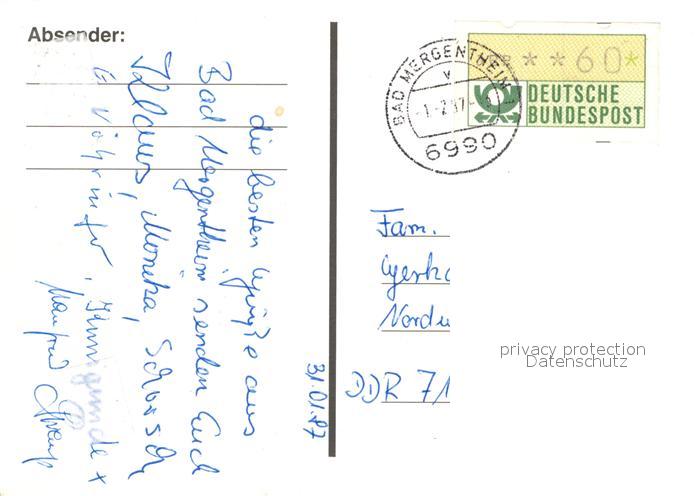 Absender:
die besten Grüße aus
Bad Mergentheim senden Euch
Klaus, Monika, Schorsch
Kunigunde +
Manfred
31.01.87
BAD MERGENTHEIM
v
-1.-2.87-
6990
**60*
DEUTSCHE
BUNDESPOST
Fam.
Gerhc
Nordu
DDR 71
privacy protection
Datenschutz